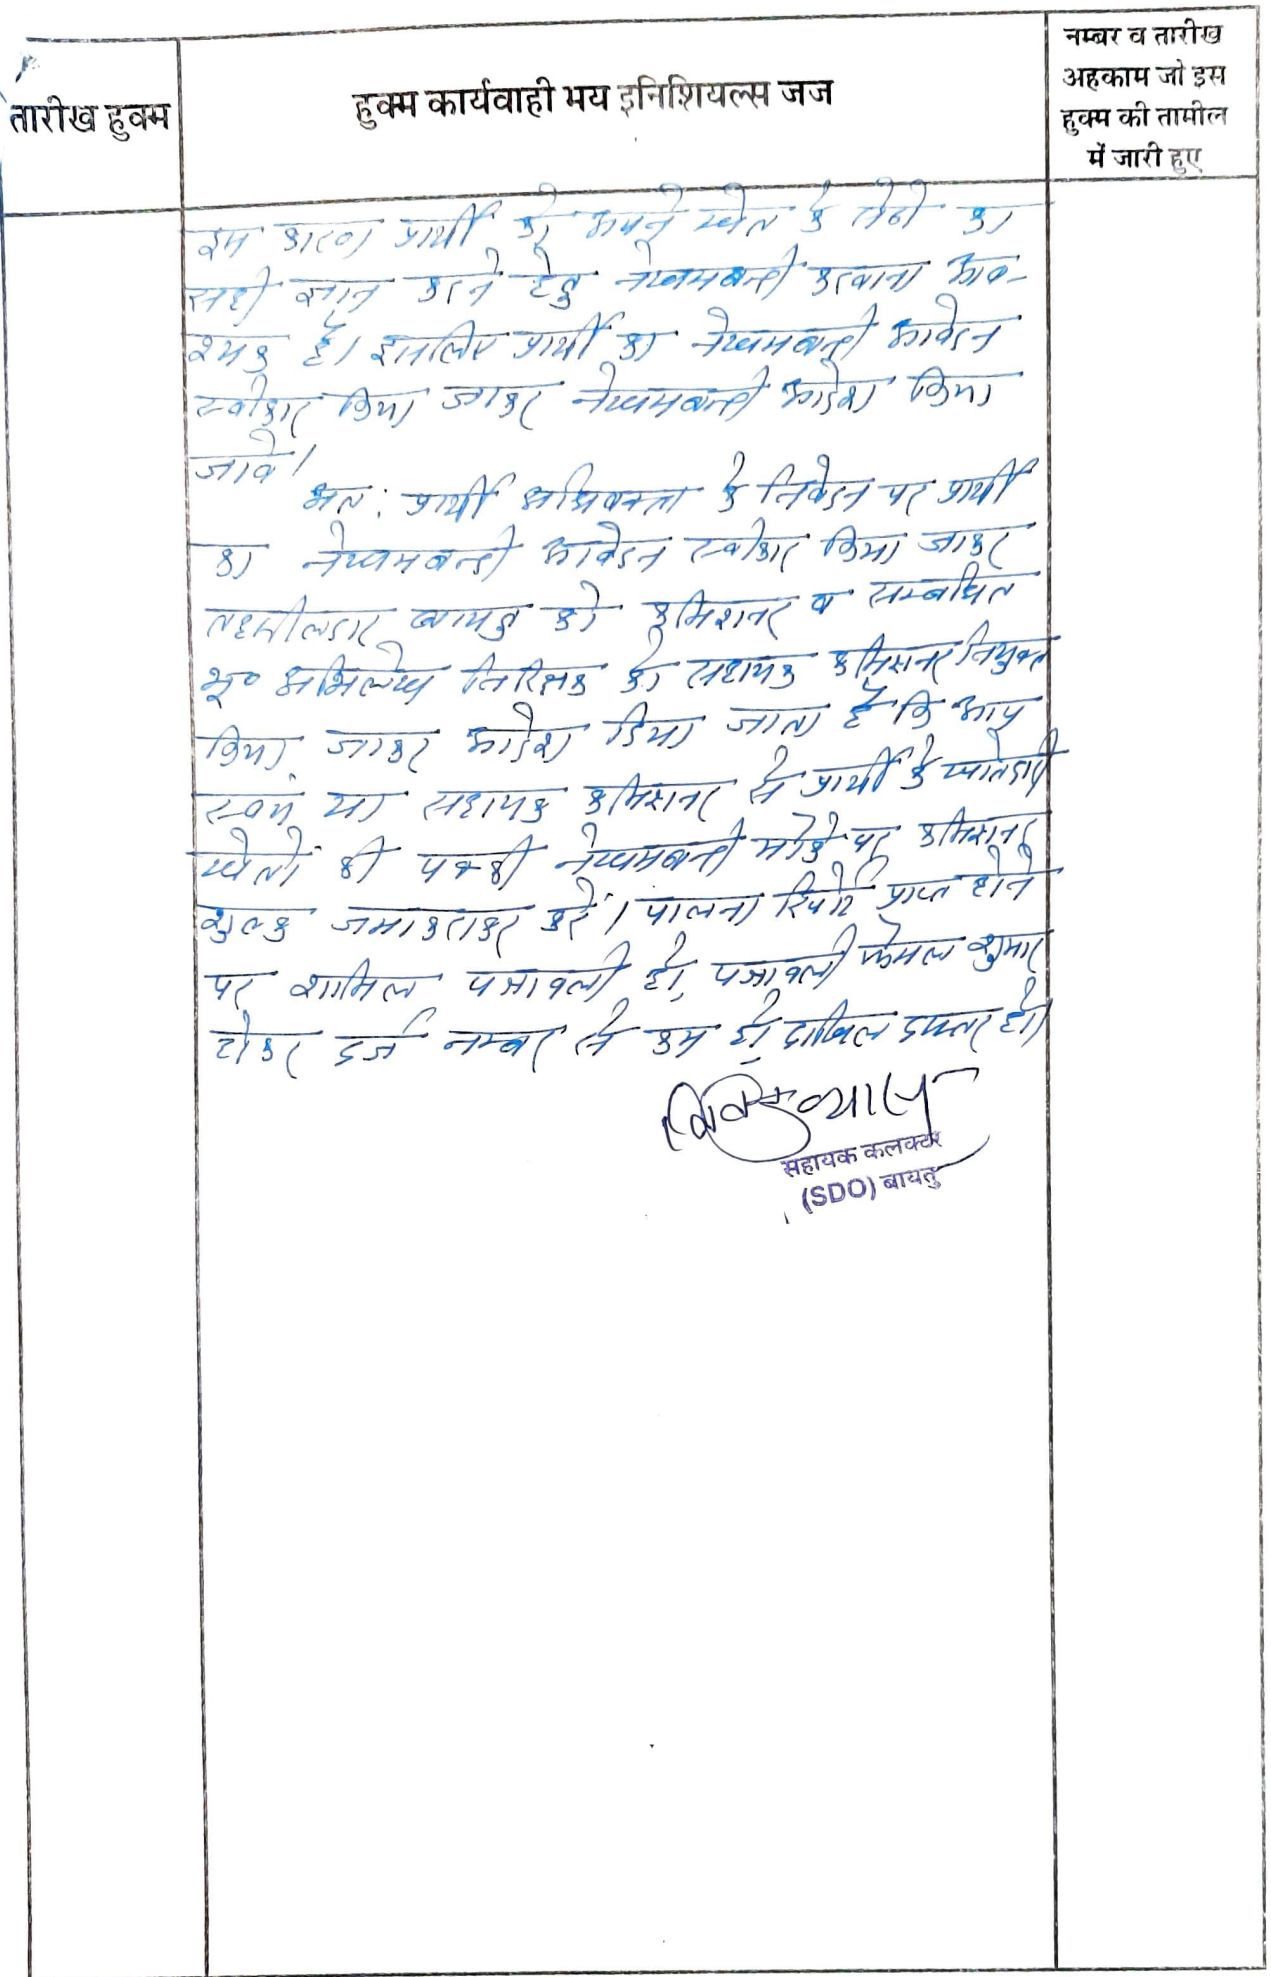 तारीख हुक्म
हुक्म कार्यवाही मय इनिशियल्स जज
नम्बर व तारीख
अहकाम जो इस
हुक्म की तामील
में जारी हुए
इस कारण प्रार्थी को अपने खेत के सेढो का
सही ज्ञान करने हेतु नेखमबन्दी करवाना आव-
श्यक है। इसलिए प्रार्थी का नेखमबन्दी आवेदन
स्वीकार किया जाकर नेखमबन्दी आदेश किया
जावे।
अतः प्रार्थी अधिवक्ता के निवेदन पर प्रार्थी
का नेखमबन्दी आवेदन स्वीकार किया जाकर
तहसीलदार बायतु को कमिशनर व सम्बधित
भू० अभिलेख निरिक्षक को सहायक कमिशनर नियुक्त
किया जाकर आदेश दिया जाता है कि आप
स्वयं या सहायक कमिशनर से प्रार्थी के खातेदारी
खेतों की पक्की नेखमबन्दी मौके पर कमिशनर
शुल्क जमा कराकर करें। पालना रिपोर्ट प्राप्त होने
पर शामिल पत्रावली हो, पत्रावली फैसल शुमार
होकर दर्ज नम्बर से कम हो, दाखिल दफ्तर हो।
सहायक कलक्टर
(SDO) बायतु